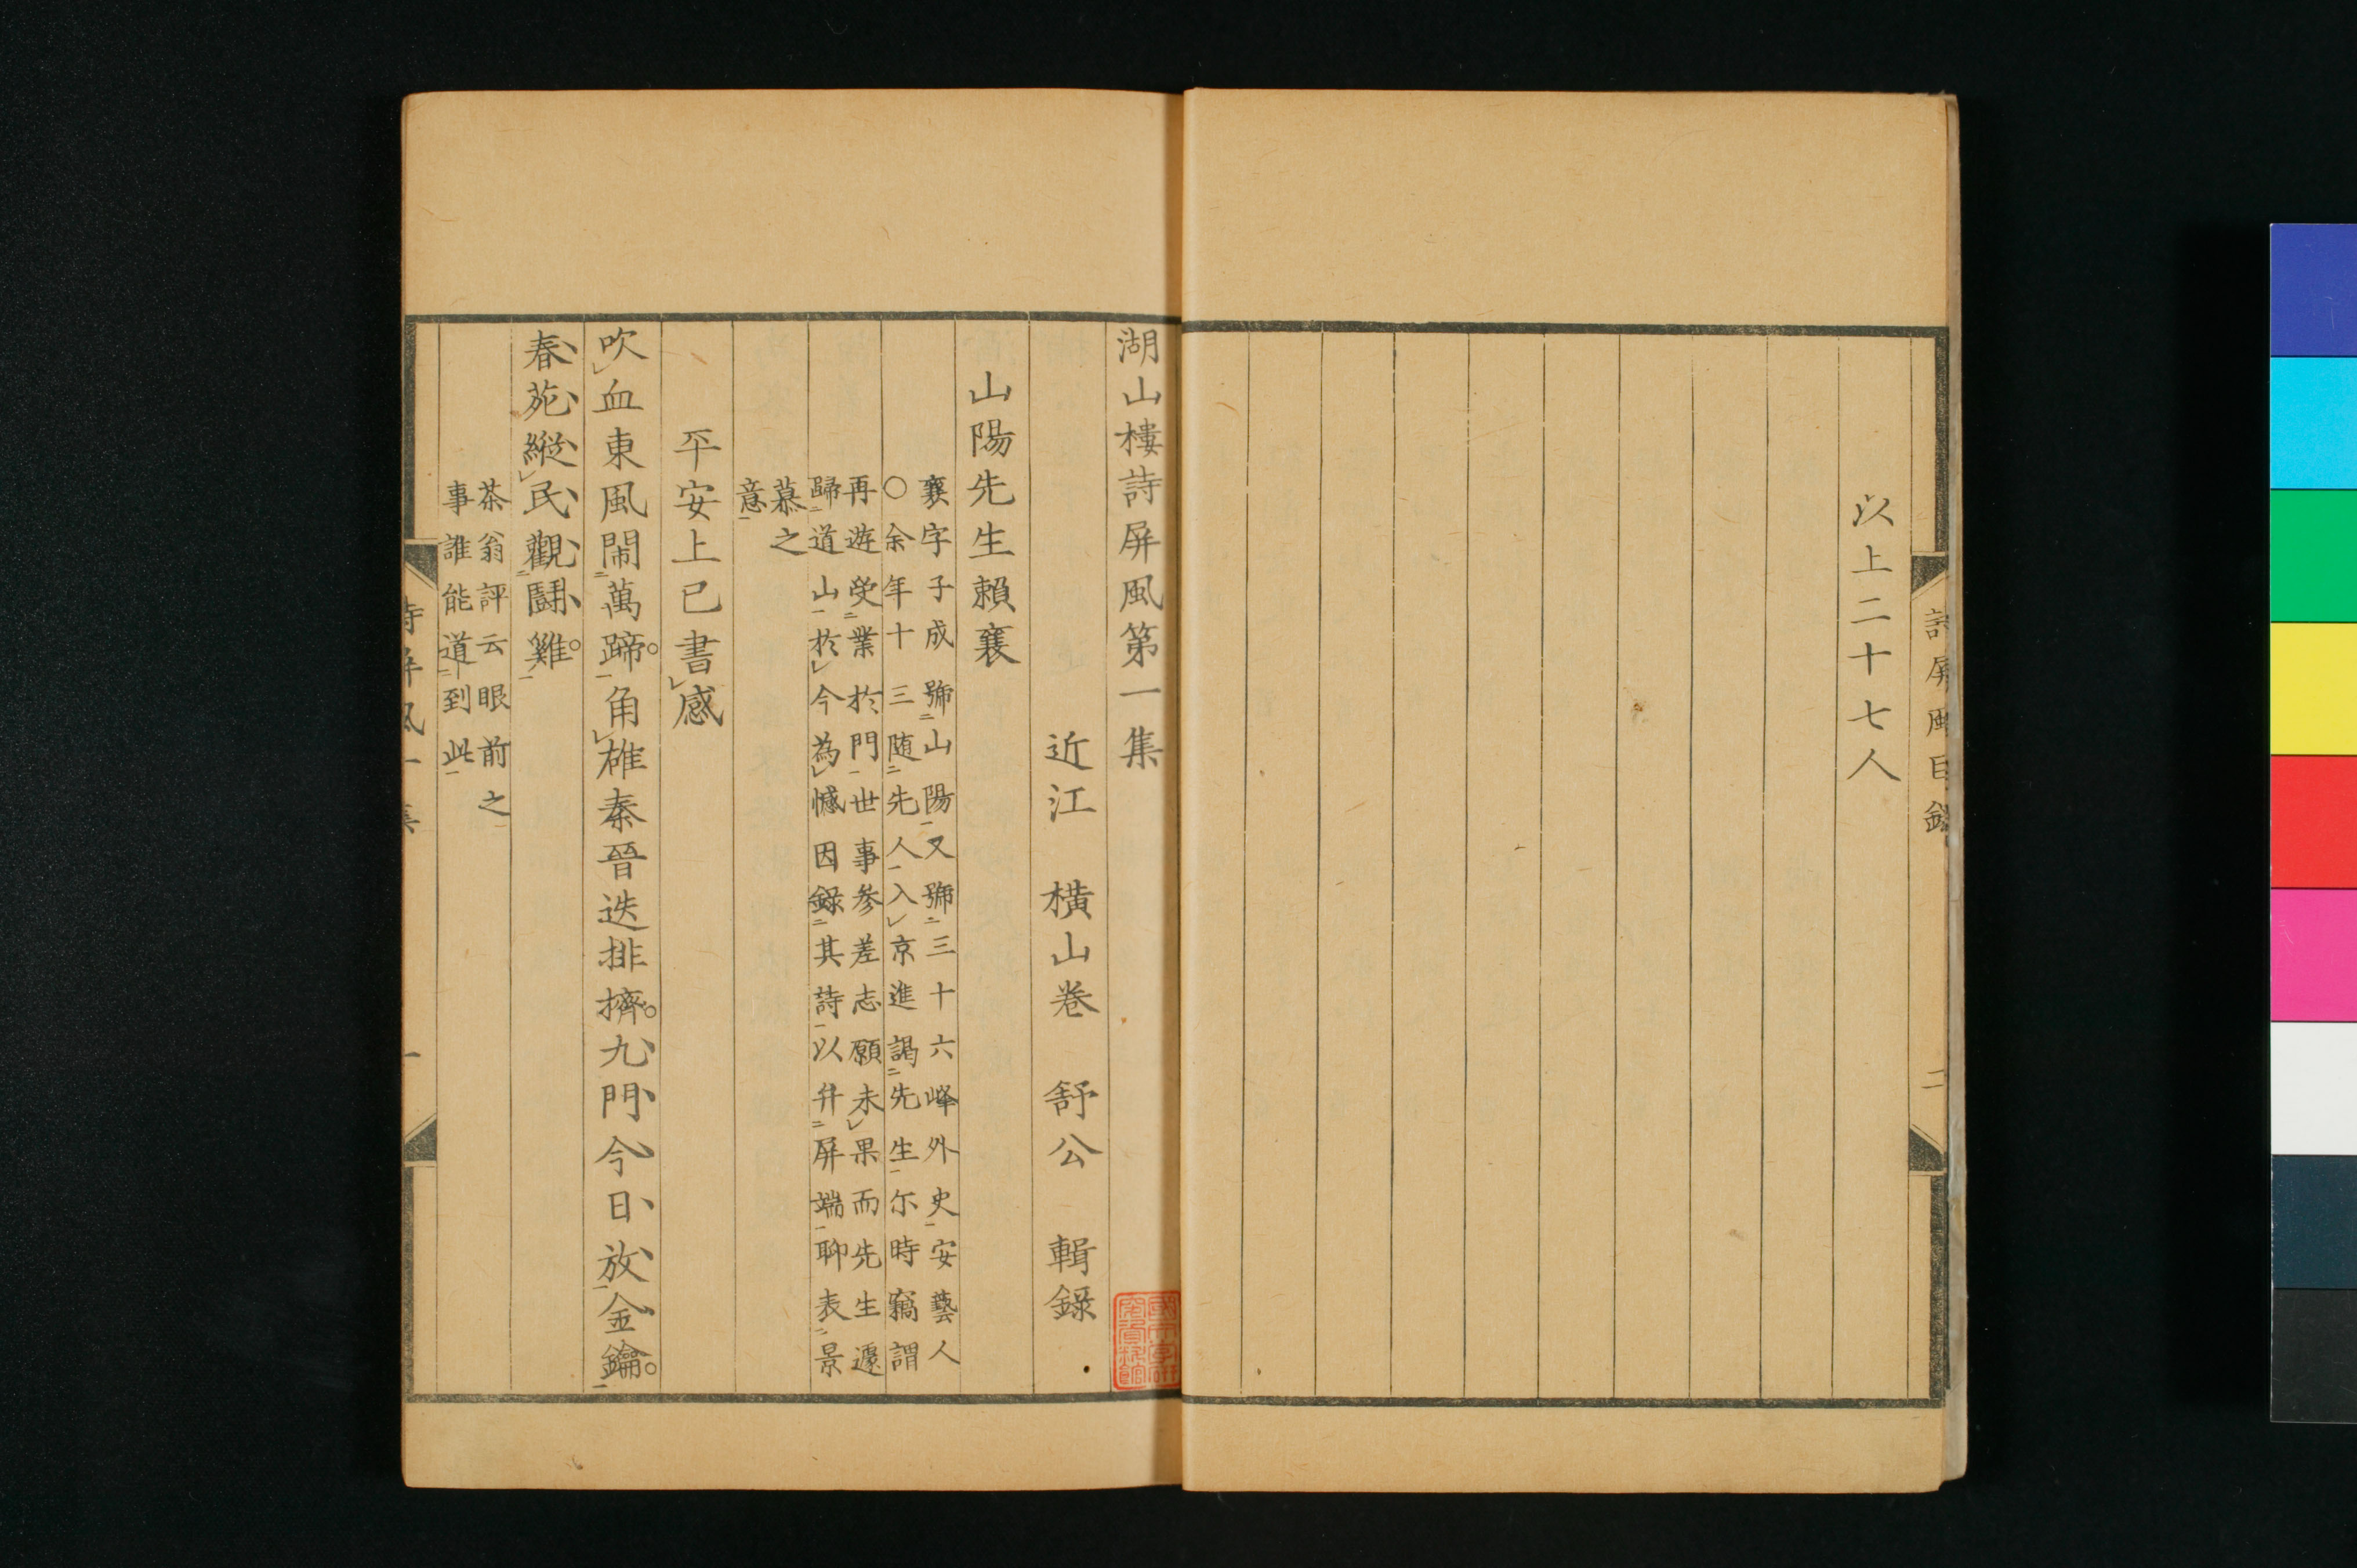 以上二十七人
詩屏風目錄
二
湖山樓詩屏風第一集
近江 橫山卷 舒公 輯錄
山陽先生賴襄
襄字子成號山陽又號三十六峰外史安藝人
○余年十三隨先人入京進謁先生尓時竊謂
再遊受業於門世事參差志願未果而先生遽
歸道山於今為憾因錄其詩以弁屏端聊表景
慕之
意
平安上巳書感
吹血東風鬧萬蹄角雄秦晉迭排擠九門今日放金鑰
春苑縱民觀鬪雞
茶翁評云眼前之
事誰能道到此
詩屏風一集
一